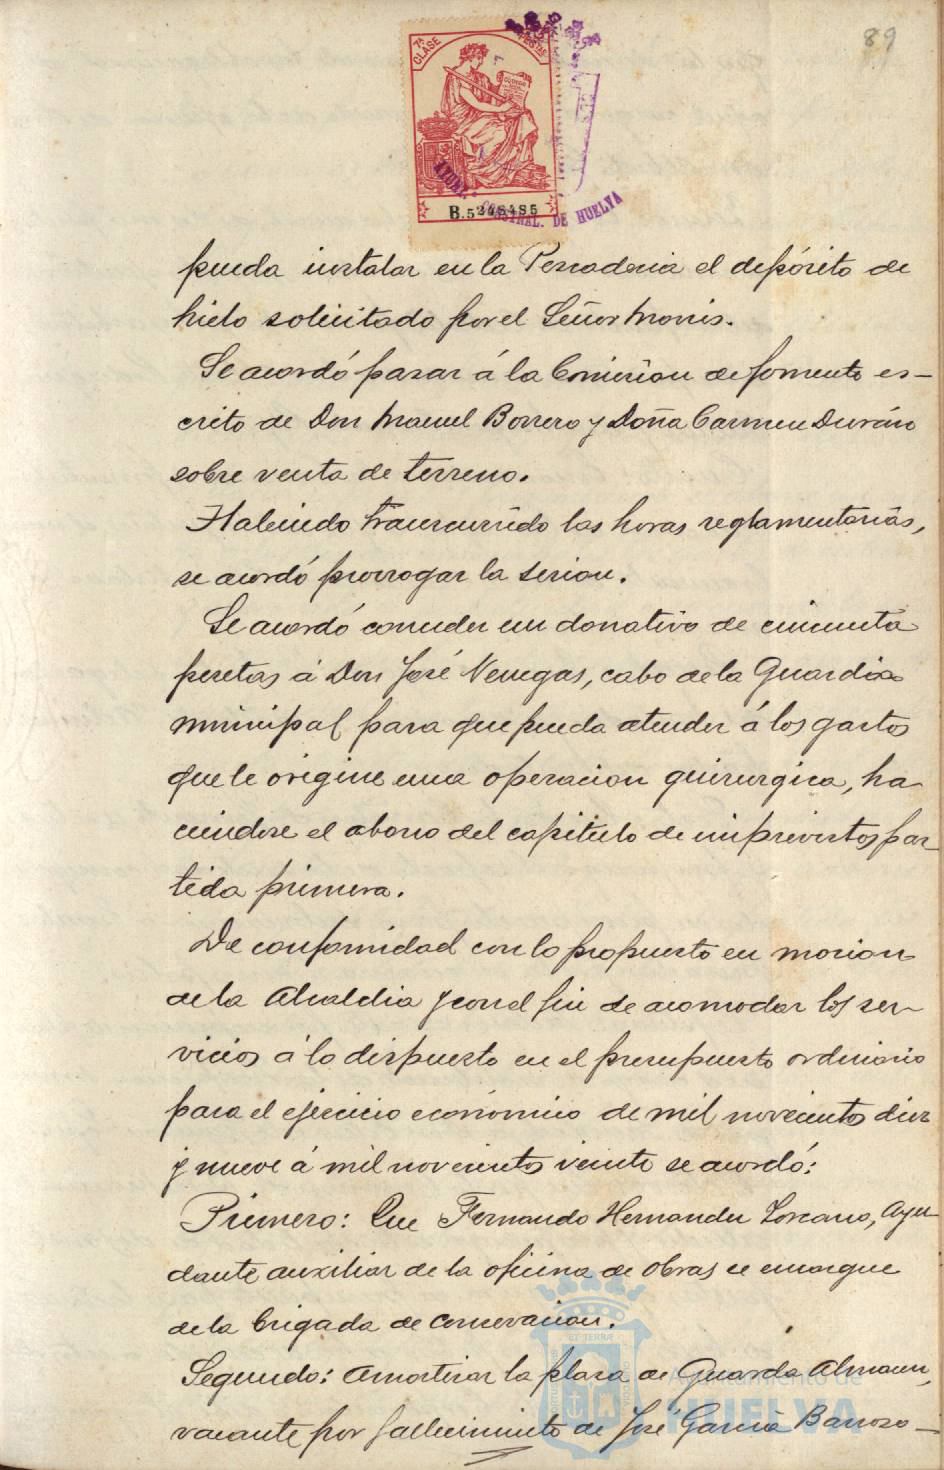 89
7ª CLASE
B.5248485
AYUNT. CONSTNAL. DE HUELVA
pueda instalar en la Pescaderia el depósito de
hielo solicitado por el Señor Morris.
Se acordó pasar á la Comision de fomento es-
crito de Don Manuel Borrero y Doña Carmen Durán
sobre venta de terreno.
Habiendo transcurrido las horas reglamentarias,
se acordó prorrogar la sesion.
Se acordó conceder un donativo de cincuenta
pesetas á Don José Venegas, cabo de la Guardia
municipal para que pueda atender á los gastos
que le origine una operacion quirurgica, ha
ciendose el abono del capitulo de imprevistos par-
tida primera.
De conformidad con lo propuesto en mocion
de la Alcaldia y con el fin de acomodar los ser-
vicios á lo dispuesto en el presupuesto ordinario
para el ejercicio económico de mil novecientos diez
y nueve á mil novecientos veinte se acordó:
Primero: Que Fernando Hernandez Lorcano, Ayu-
dante auxiliar de la oficina de Obras se encargue
de la brigada de conservacion.
Segundo: Amortizar la plaza de Guarda Almacen,
vacante por fallecimiento de José Garcia Barroso-
Ayuntamiento de
HUELVA